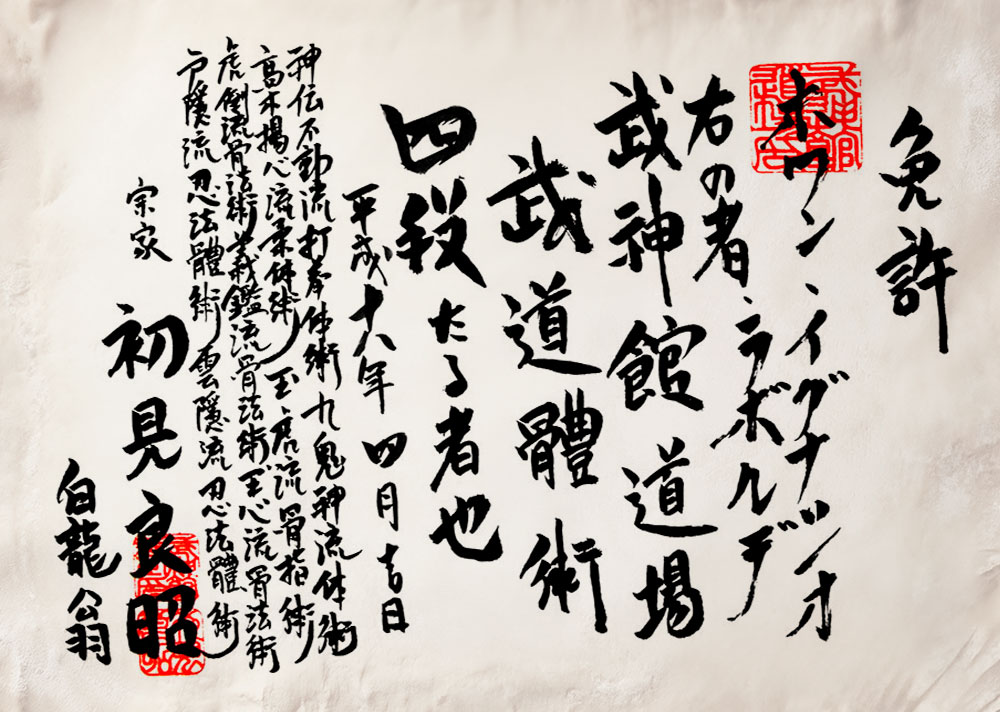 免許
ホワン・イグナツィオ
・ラボルデ
右の者
武神館道場
武道體術
四段たる者也
平成十八年四月吉日
神伝不動流打拳体術九鬼神流体術
高木揚心流柔体術玉虎流骨指術
虎倒流骨法術義鑑流骨法術玉心流骨法術
戸隠流忍法體術雲隠流忍法體術
宗家
初見良昭
白龍翁